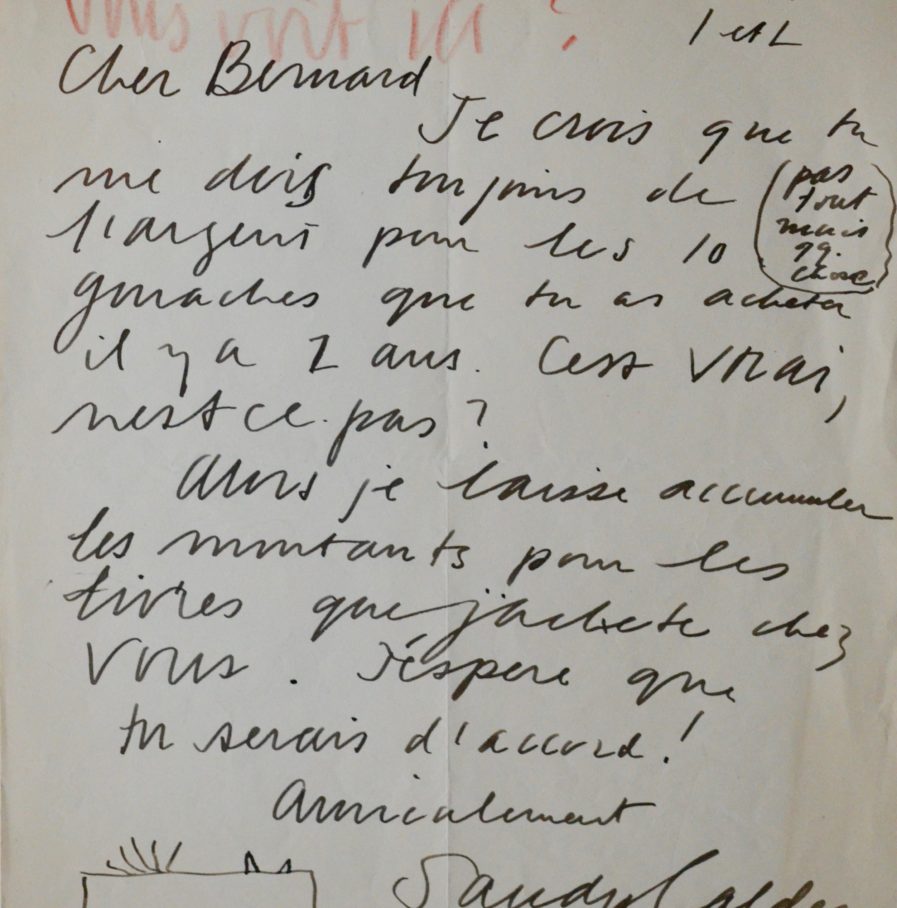 vous voit ici ?
1 et 2
Cher Bernard
Je crois que tu
me dois toujours de
l'argent pour les 10
(pas
tout
mais
qq.
chose)
gouaches que tu as acheter
il y a 2 ans. C'est vrai,
n'est ce pas ?
Alors je laisse accumuler
les montants pour les
livres que j'achete chez
Vous. J'éspere que
tu serais d'accord !
Amicalement
Sandy Calder